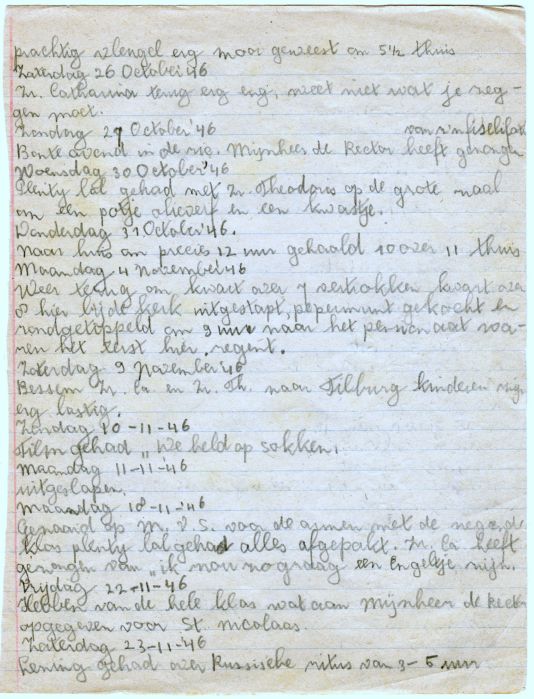 prachtig erg moor geweest om 5½ thuis
Zaterdag 26 October '46
Zr. Catharina terug erg eng, weet niet wat je zeg-
gen moet.
Zondag 27 October '46 van
Bonte avond in de rio. Mijnheer de Rector heeft gezongen
Woensdag 30 October '46
Plenty lol gehad met Zr. Theodorio op de grote naal
om een potje olieverf en een kwastje.
Donderdag 31 October '46.
Naar huis om precies 12 uur gehaald 10 over 11 thuis
Maandag 4 November '46
Weer terug om kwart over 7 vertrokken kwart over
8 hier bij de kerk uitgestapt, pepermunt gekocht en
rondgetoppeld om 9 uur naar het pensionaat wa-
ren het eerst hier. regent.
Zaterdag 9 November '46
Bessem Zr. Ca en Zr. Th. naar Tilburg kinderen
erg lastig.
Zondag 10-11-46
Film gehad „We held op sokken.
Maandag 11-11-46
uitgeslapen.
Maandag 18-11-46
op M. v S. voor de armen met de
klas plenty lol gehad alles afgepakt. Zr. Ca heeft
gezongen van „ik zou nog graag een Engeltje zijn.
Vrijdag 22-11-46
Hebben van de hele klas wat aan Mijnheer de Rector
opgegeven voor St. Nicolaas.
Zaterdag 23-11-'46
Lezing gehad over Russische ritus van 3-5 uur